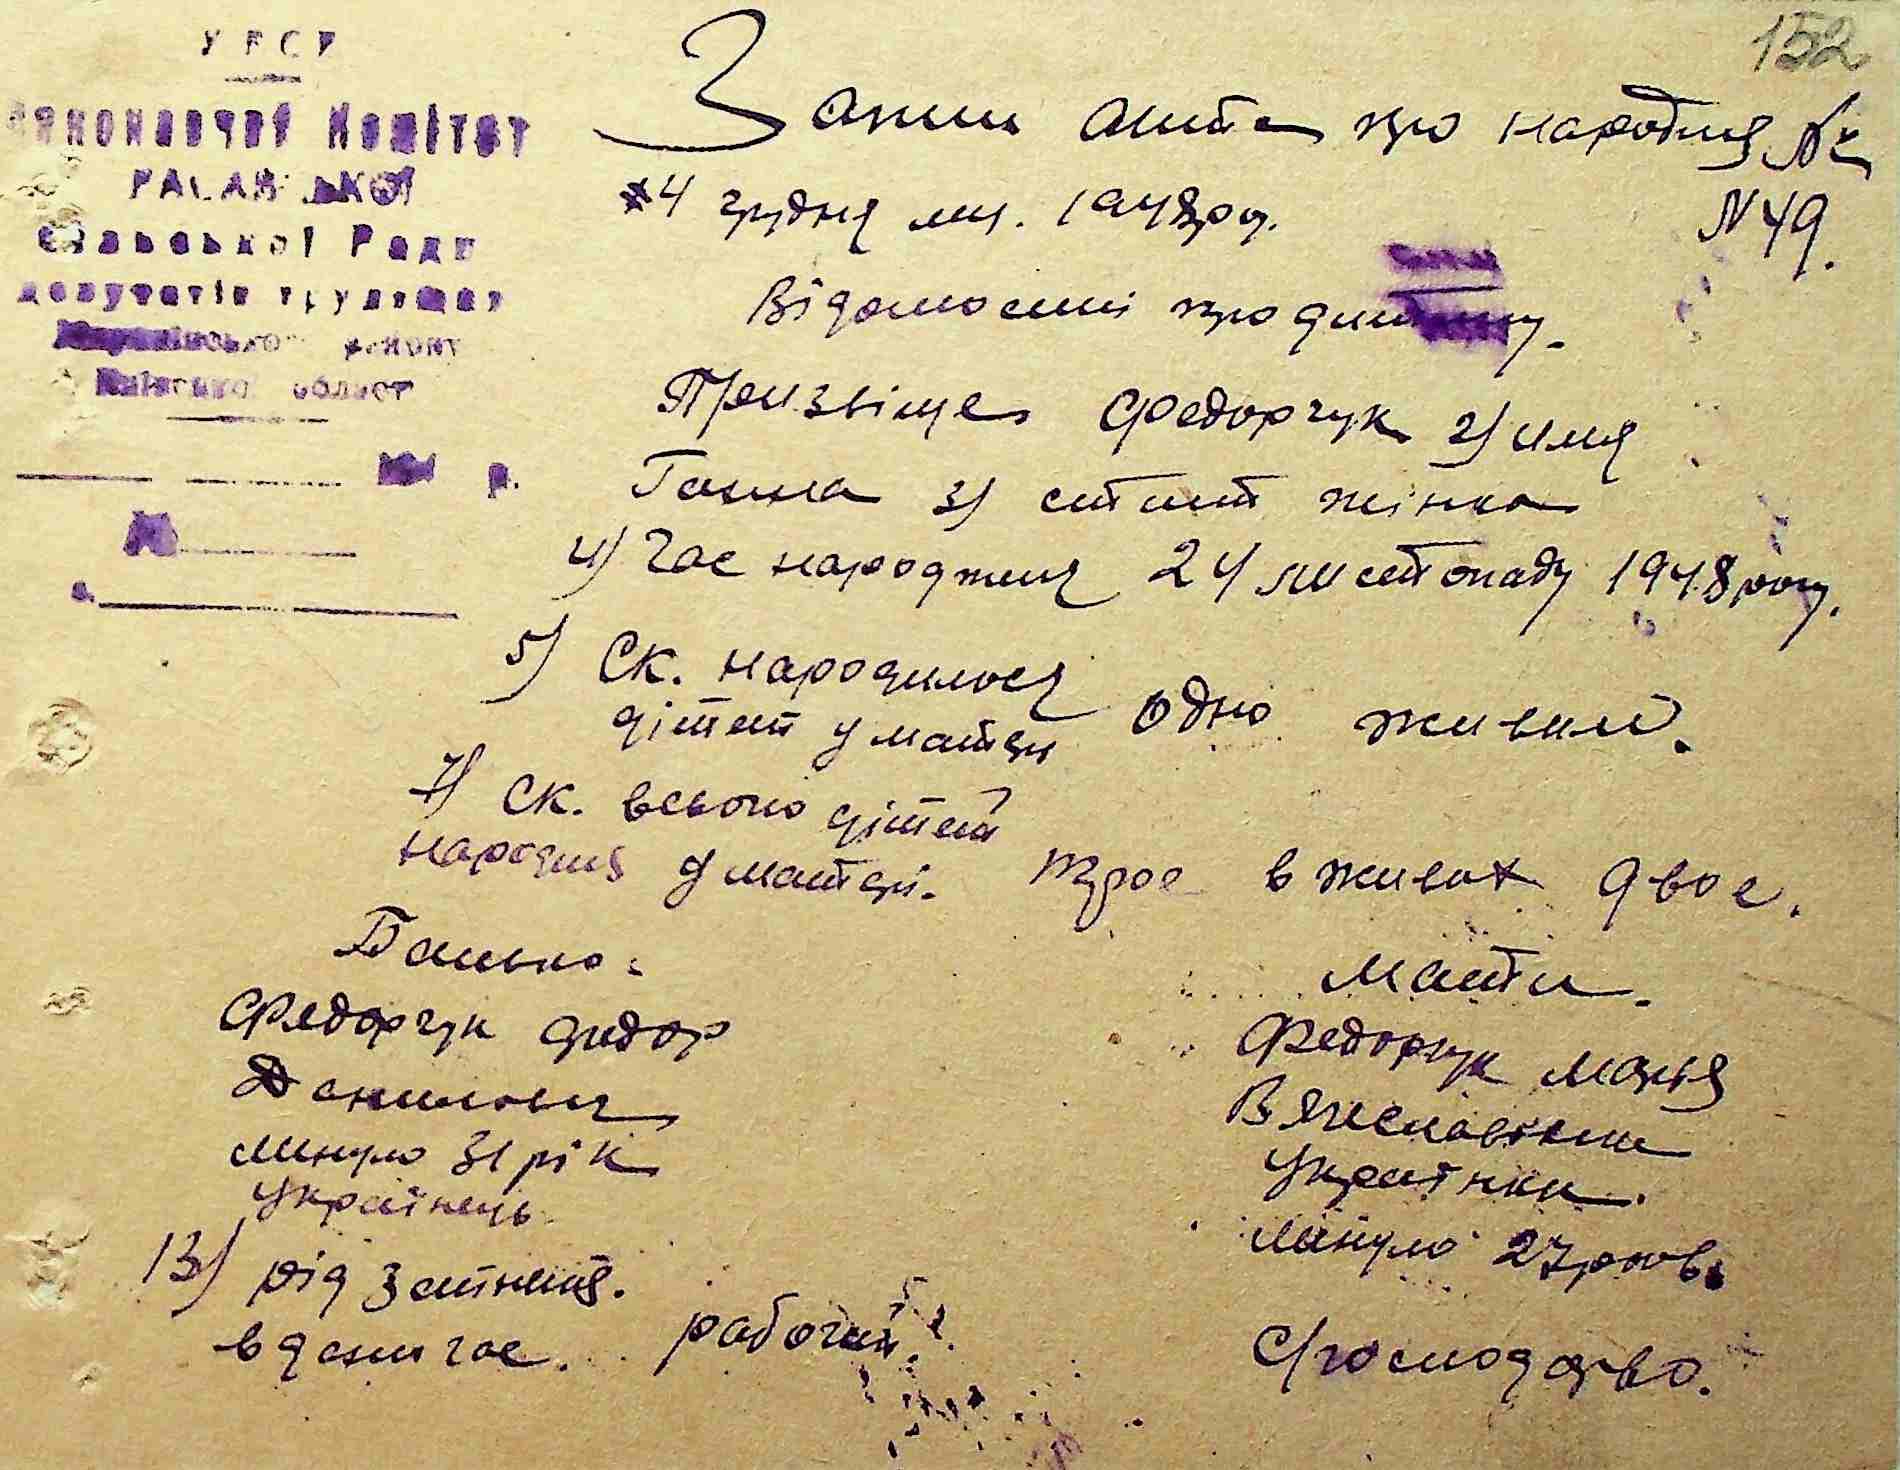 152
УРСР
Виконавчий Комітет
Сільської Ради
депутатів трудящих
району
Київської област
р.
Запис акта про народня №
N 49.
4 грудня м-ця. 1948 року.
Відомості про дитину.
Призвіще Федорчук 2) имя
Ганна 3) стат жінка
4) Час народженя 24 листопаду 1948 року.
5) Ск. народилося
дітей у матері одно живим.
7) Ск. всього дітей
народив у матері. трое в живых двое.
Батько.
Федорчук Федор
Данилович
минуло 31 рік
Українець
13) рід занятия.
в даний час. рабочий.
Мати.
Федорчук Марія
Вячеславовна
Українка.
минуло 27 років.
С/господарство.